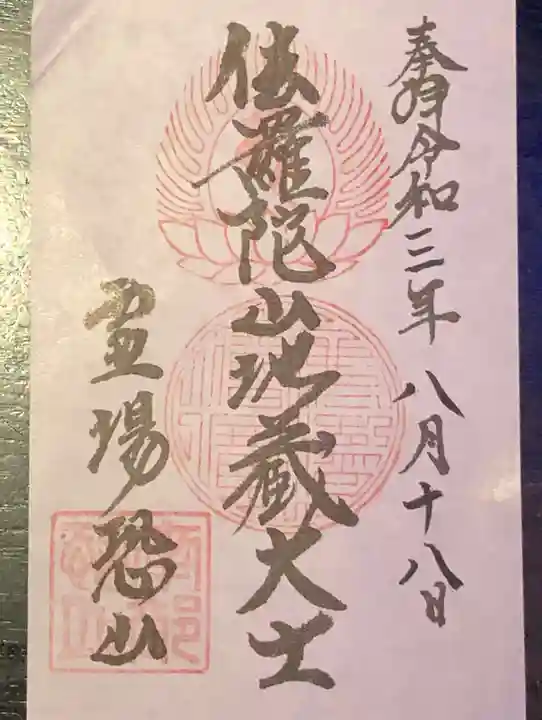 奉拝 令和三年 八月十八日
伽羅陀山地蔵大士
霊場恐山